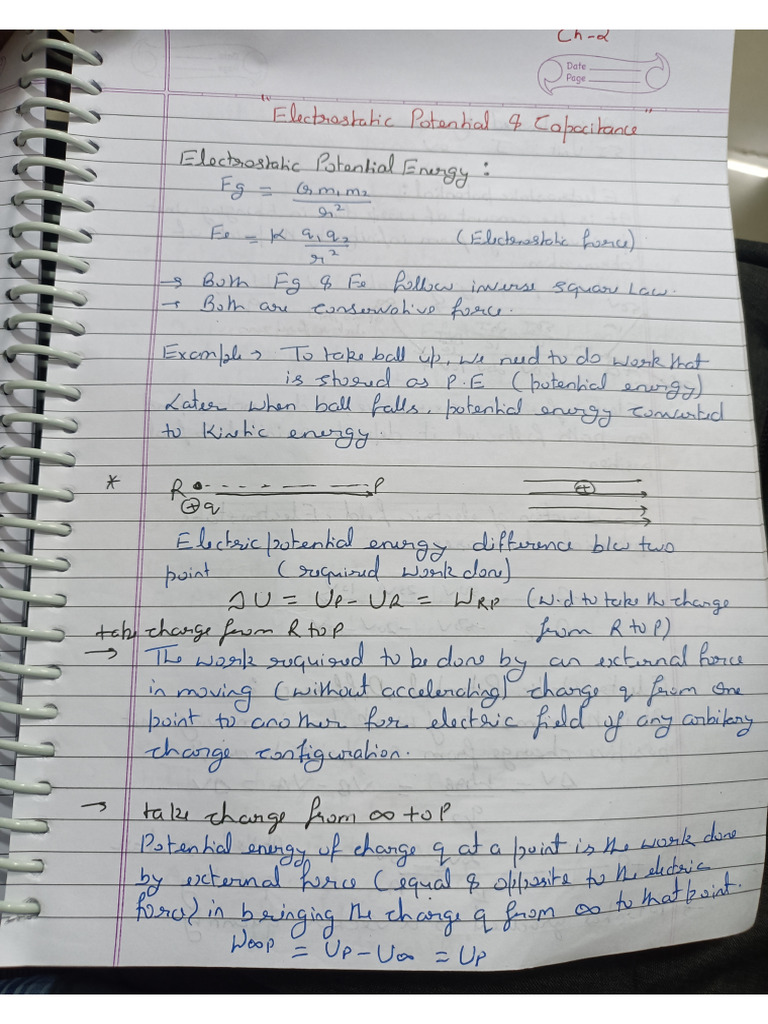 Ch-2
Date
Page
"Electrostatic Potential & Capacitance"
Electrostatic Potential Energy :
Fg = G m₁ m₂ / r²
Fe = K q₁ q₂ / r² (Electrostatic force)
→ Both Fg & Fe follow inverse square law.
→ Both are conservative force.
Example → To take ball up, we need to do work that
is stored as P.E (potential energy)
Later when ball falls, potential energy converted
to kinetic energy.
* R P
+ q +
Electric potential energy difference b/w two
point (required work done)
ΔU = UP - UR = WRP (w.d to take the charge
take charge from R to P from R to P)
→ The work required to be done by an external force
in moving (without accelerating) charge q from one
point to another for electric field of any arbitary
charge configuration.
→ take charge from ∞ to P
Potential energy of charge q at a point is the work done
by external force (equal & opposite to the electric
force) in bringing the charge q from ∞ to that point.
W∞P = UP - U∞ = UP